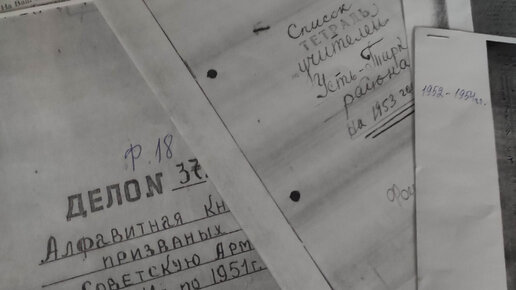 на Ваш
Ф. 18
ДЕЛО N 37.
Алфавитная Кн
призваных
Советскую Арм
по 1951г.
Список
ТЕТРАДЬ
учителей
Усть-Тарк
района
на 1953 го
1952-1954гг.
Фо